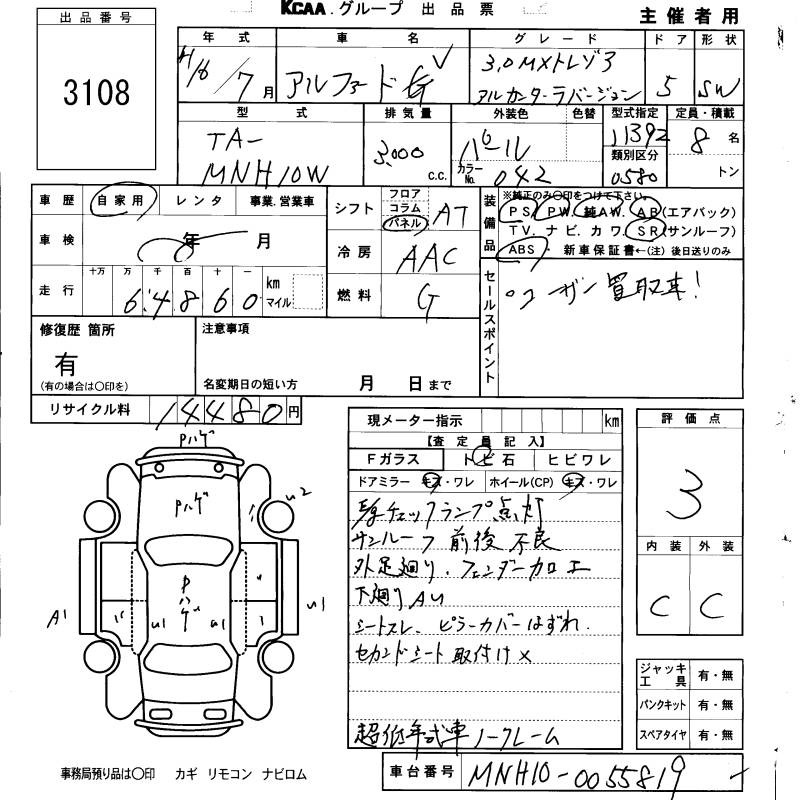 KCAA.グループ 出品票
主催者用
出品番号
3108
年式 車名 グレード ドア 形状
H16/7月 アルファード 3.0MXトレゾア
アルカンターラバージョン 5 SW
型式 排気量 外装色 色替 型式指定 定員・積載
TA-
MNH10W 3000 c.c. パール カラーNo. 042 11392 8名
類別区分
0580 トン
車歴 自家用 レンタ 事業.営業車
シフト フロア コラム パネル AT
装備品 ※純正のみ〇印をつけて下さい。
PS. PW. 純AW. AB(エアバック)
TV. ナビ. カワ. SR(サンルーフ)
ABS・新車保証書←(注)後日送りのみ
車検 年 月
冷房 AAC
走行 十万 万 千 百 十 一
64860 km マイル
燃料 G
セールスポイント
ワンオーナー買取車!
修復歴 箇所
有
(有の場合は〇印を)
注意事項
名変期日の短い方 月 日まで
リサイクル料 14480円
現メーター指示 km
【査定員記入】
Fガラス トビ石 ヒビワレ
ドアミラー キズ・ワレ ホイール(CP) キズ・ワレ
チェックランプ点灯
サンルーフ 前後不良
外足廻り.フェンダー加工
下廻りAU
シートスレ.ピラーカバーはずれ.
セカンドシート取付け×
超低年式車ノークレーム
評価点
3
内装 外装
C C
Pハゲ
Pハゲ
U2
Pハゲ
A1
U1 U1
U1
ジャッキ工具 有・無
パンクキット 有・無
スペアタイヤ 有・無
事務局預り品は〇印 カギ リモコン ナビロム
車台番号 MNH10-0055819